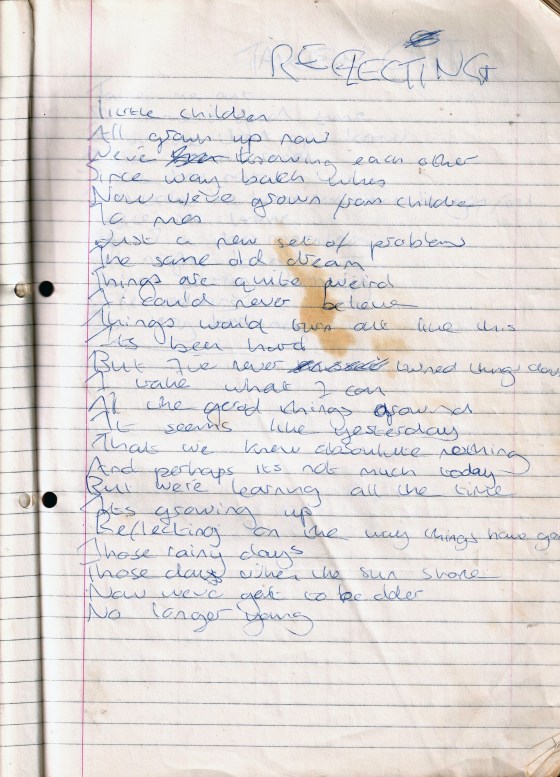 REFLECTING
Little children
All grown up now
We've knowing each other
Since way back when
Now we've grown from children
To men
Just a new set of problems
The same old dream
Things are quite weird
I could never believe
Things would turn out like this
Its been hard
But I've never turned things down
I take what I can
All the good things around
It seems like yesterday
That we knew absolutle nothing
And perhaps its not much today
But we're learning all the time
Its growing up
Reflecting on the way things have gone
Those rainy days
Those days when the sun shone
Now we've got to be older
No longer young